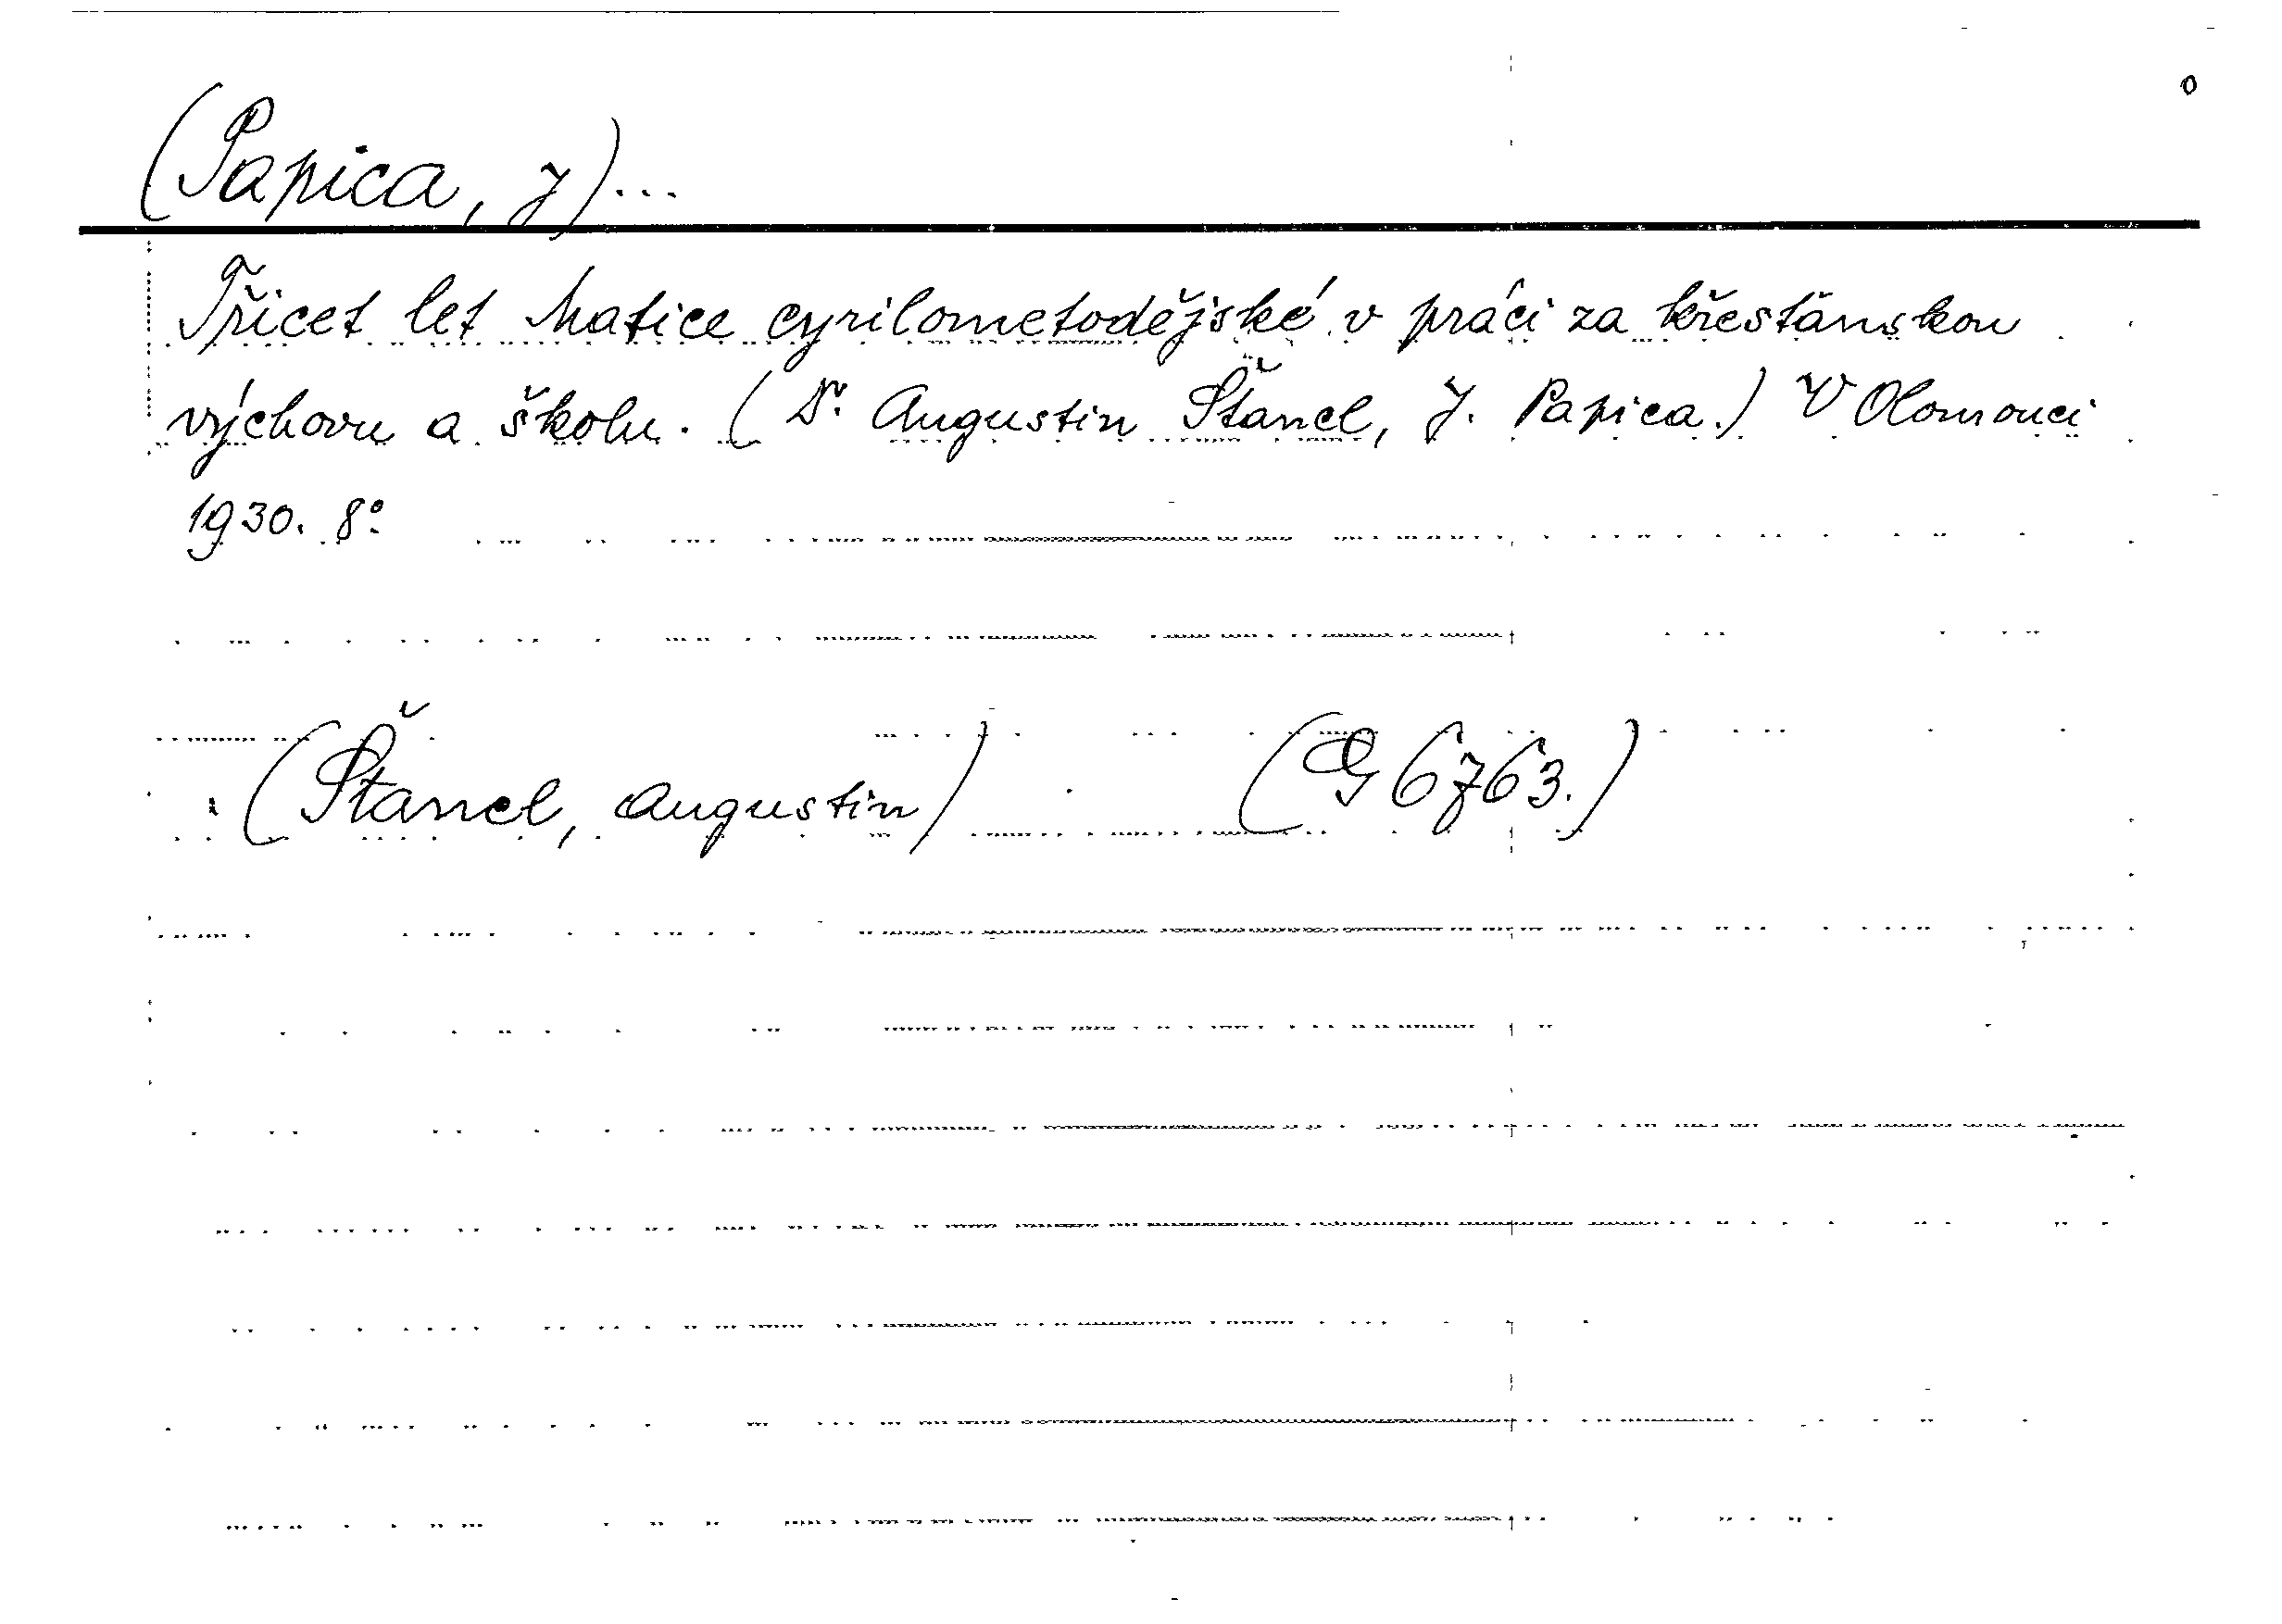 o
(Papica, J)...
Třicet let Matice cyrilometodějské v práci za křesťanskou
výchovu a školu. (Dr. Augustin Štancl, J. Papica.) V Olomouci
1930. 8°
(Štancl, Augustin) (G 6763.)